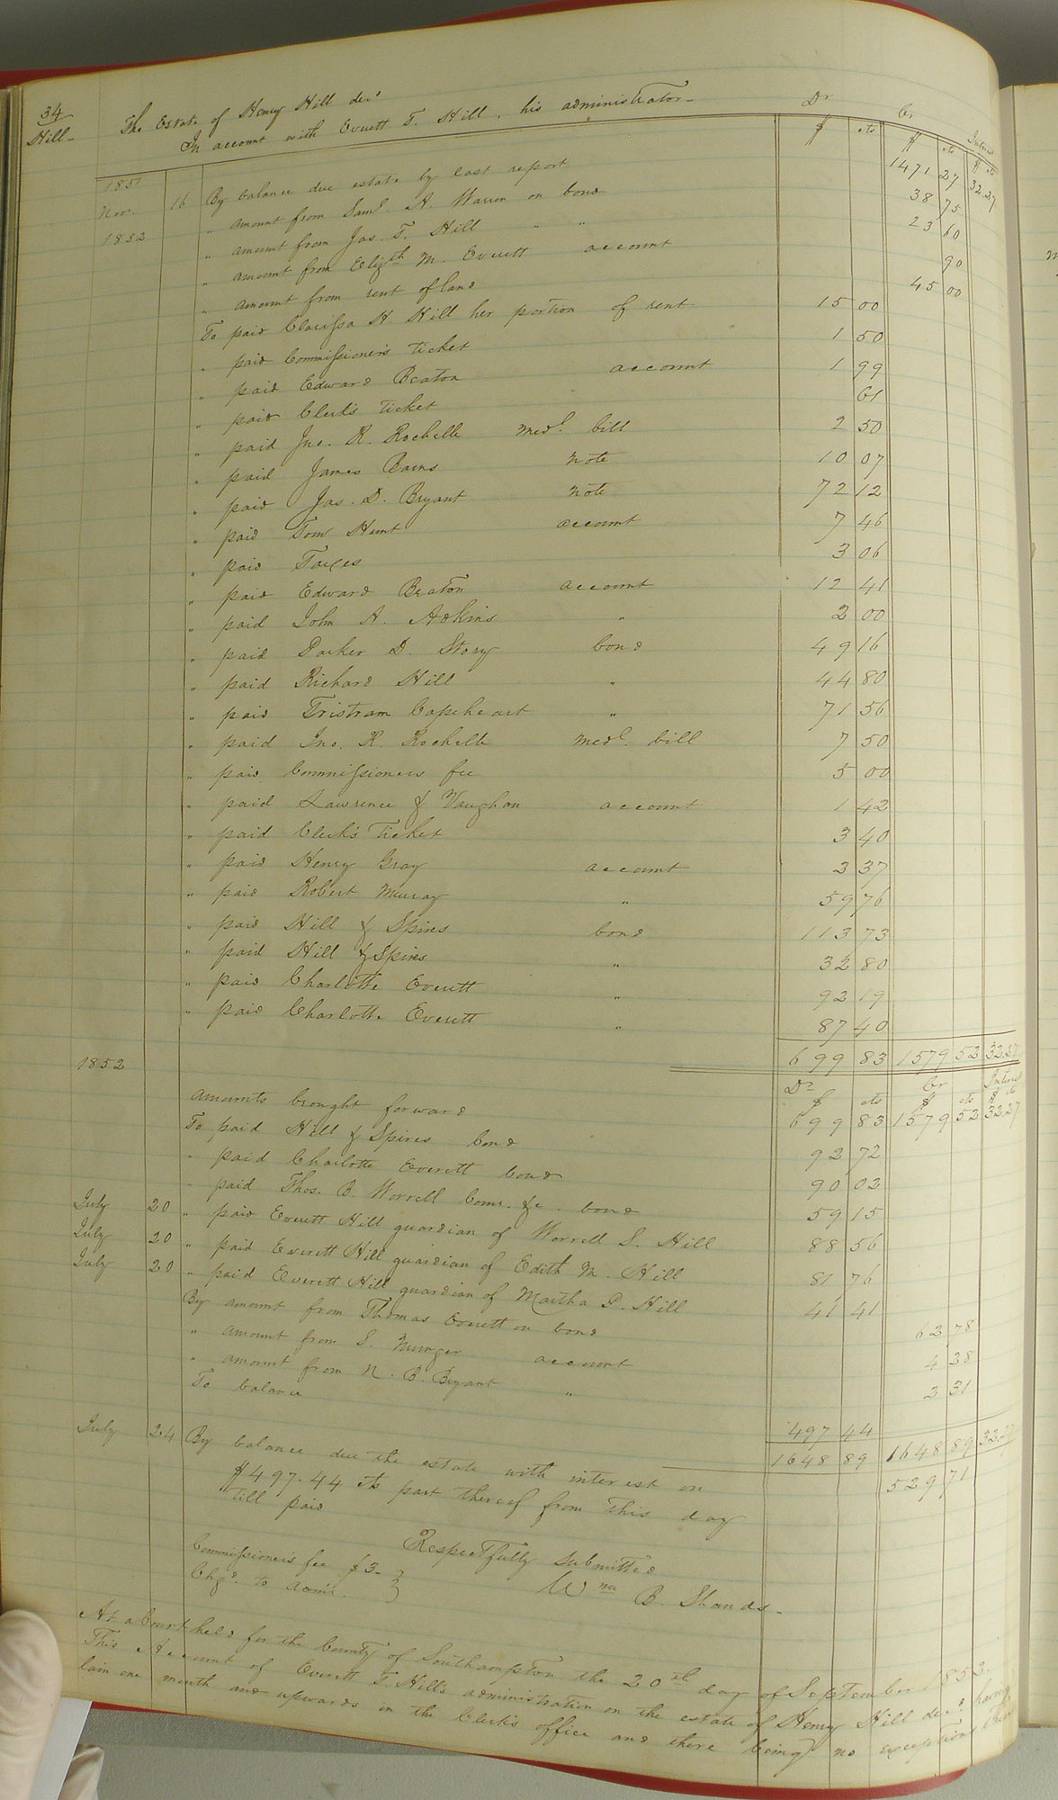 34
Hill-
The Estate of Henry Hill decd
In account with Everett T. Hill, his administrator- Dr Cr Interest
$ cts $ cts $ cts
1851
Nov. 16 By balance due estate by last report 1471 27 32.27
1852 " amount from Saml. A. Warren on bond 38 75
" amount from Jas. T. Hill " " 23 60
" amount from Elizth M. Everett account 90
" amount from rent of land 45 00
To paid Clarissa H Hill her portion of rent 15 00
" paid Commissioner's Ticket 1 50
" paid Edward Beaton account 1 99
" paid Clerk's Ticket 61
" paid Jno. R. Rochelle Medl. bill 2 50
" paid James Barns note 10 07
" paid Jas. D. Bryant note 72 12
" paid Tom Hunt account 7 46
" paid Taxes 3 06
" paid Edward Beaton account 12 41
" paid John A. Adkins " 2 00
" paid Parker D. Story bond 49 16
" paid Richard Hill " 44 80
" paid Tristram Capeheart " 71 56
" paid Jno. R. Rochelle Medl. bill 7 50
" paid Commissioners fee 5 00
" paid Lawrence & Vaughan account 1 42
" paid Clerk's Ticket 3 40
" paid Henry Gray account 2 37
" paid Robert Murray " 59 76
" paid Hill & Spires bond 113 73
" paid Hill & Spires " 32 80
" paid Charlotte Everett " 92 19
" paid Charlotte Everett " 87 40
699 83 1579 52 32.27
1852 Dr Cr Interest
$ cts $ cts $ cts
amounts brought forward 699 83 1579 52 32.27
To paid Hill & Spires bond 92 72
" paid Charlotte Everett bond 90 02
" paid Thos. B. Worrell Comr. &c. bond 59 15
July 20 " paid Everett Hill guardian of Worrell S. Hill 88 56
July 20 " paid Everett Hill guardian of Edith M. Hill 81 76
July 20 " paid Everett Hill guardian of Martha P. Hill 41 41
By amount from Thomas Everett on bond 62 78
" amount from S. Munger account 4 28
" amount from N. B. Bryant " 2 31
To balance 497 44
1648 89 1648 89 32.27
July 24 By balance due the estate with interest on 529 71
$497.44 cts part thereof from this day
till paid
Respectfully submitted
Wm B. Shands-
Commissioner's fee $3-
Chgd. to admr.
At a Court held for the County of Southampton the 20th day of September 1852.
This Account of Everett T. Hill's administration on the estate of Henry Hill decd. having
lain one month and upwards in the Clerk's office and there being no exceptions